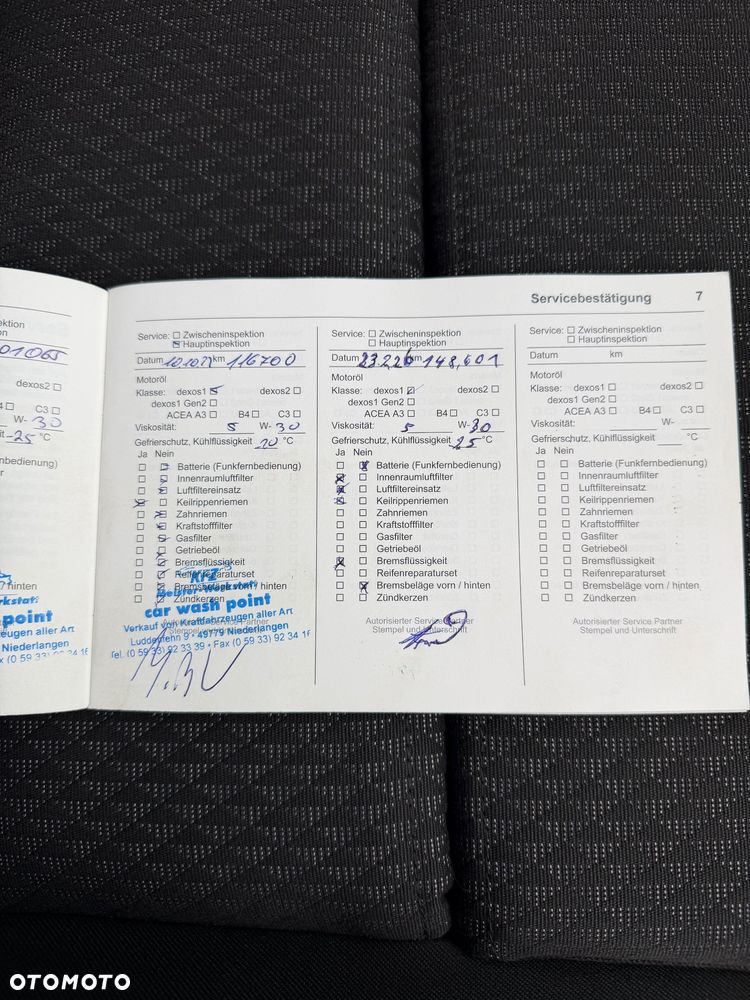 Servicebestätigung 7
ektion
n
01065
dexos2
C3
W- 30
-25 °C
nbedienung)
r
/ hinten
rkstatt
point
zeugen aller Art
Niederlangen
x (0 59 33) 92 34 16
Service: Zwischeninspektion
Hauptinspektion
Datum km 116700
Motoröl
Klasse: dexos1 dexos2
dexos1 Gen2
ACEA A3 B4 C3
Viskosität: 5 W- 30
Gefrierschutz, Kühlflüssigkeit -20 °C
Ja Nein
Batterie (Funkfernbedienung)
Innenraumluftfilter
Luftfiltereinsatz
Keilrippenriemen
Zahnriemen
Kraftstofffilter
Gasfilter
Getriebeöl
Bremsflüssigkeit
Reifenreparaturset
Bremsbeläge vorn / hinten
Zündkerzen
KFZ
Meister-Werkstatt
car wash point
Verkauf von Kraftfahrzeugen aller Art
Luddenfehn 9 • 49779 Niederlangen
Tel. (0 59 33) 92 33 39 • Fax (0 59 33) 92 34 16
Autorisierter Service Partner
Stempel und Unterschrift
Service: Zwischeninspektion
Hauptinspektion
Datum km 148,601
Motoröl
Klasse: dexos1 dexos2
dexos1 Gen2
ACEA A3 B4 C3
Viskosität: 5 W- 30
Gefrierschutz, Kühlflüssigkeit 25 °C
Ja Nein
Batterie (Funkfernbedienung)
Innenraumluftfilter
Luftfiltereinsatz
Keilrippenriemen
Zahnriemen
Kraftstofffilter
Gasfilter
Getriebeöl
Bremsflüssigkeit
Reifenreparaturset
Bremsbeläge vorn / hinten
Zündkerzen
Autorisierter Service Partner
Stempel und Unterschrift
Service: Zwischeninspektion
Hauptinspektion
Datum km
Motoröl
Klasse: dexos1 dexos2
dexos1 Gen2
ACEA A3 B4 C3
Viskosität: W-
Gefrierschutz, Kühlflüssigkeit °C
Ja Nein
Batterie (Funkfernbedienung)
Innenraumluftfilter
Luftfiltereinsatz
Keilrippenriemen
Zahnriemen
Kraftstofffilter
Gasfilter
Getriebeöl
Bremsflüssigkeit
Reifenreparaturset
Bremsbeläge vorn / hinten
Zündkerzen
Autorisierter Service Partner
Stempel und Unterschrift
OTOMOTO